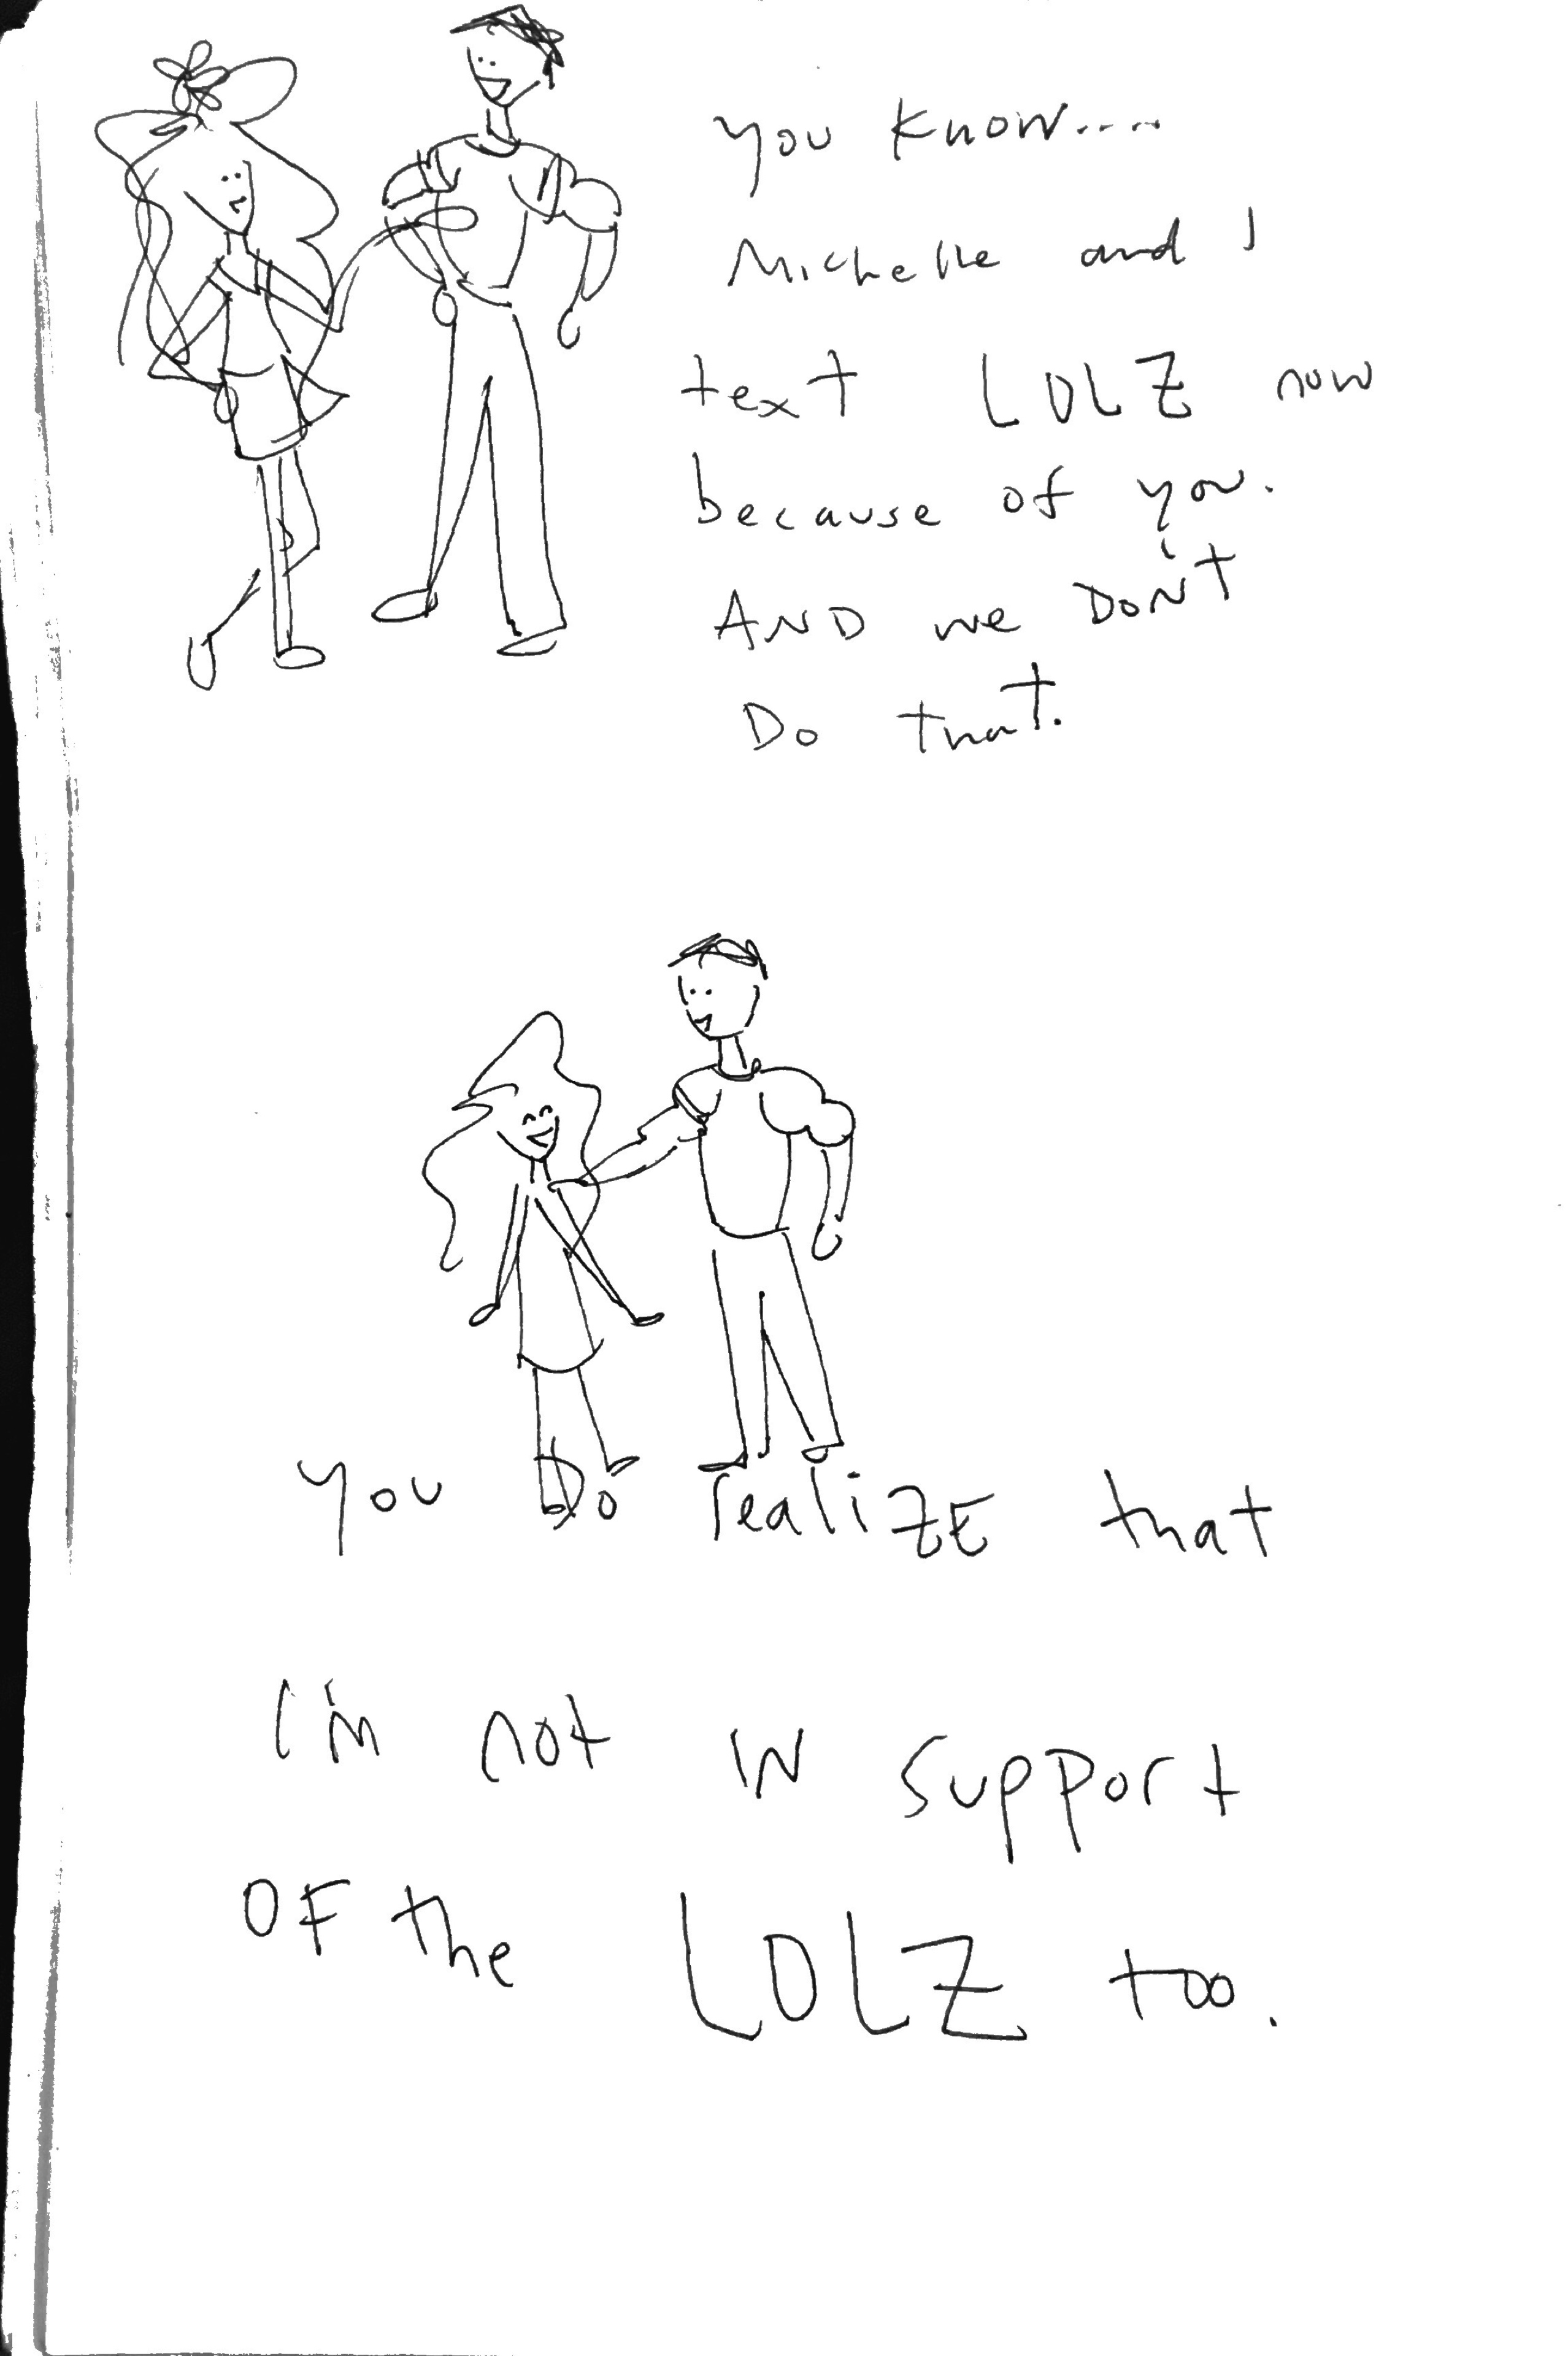 you know....
Michelle and I
text LOLZ now
because of you.
AND we DON'T
Do that.
you Do realiZE that
I'm not IN support
OF the LOLZ too.